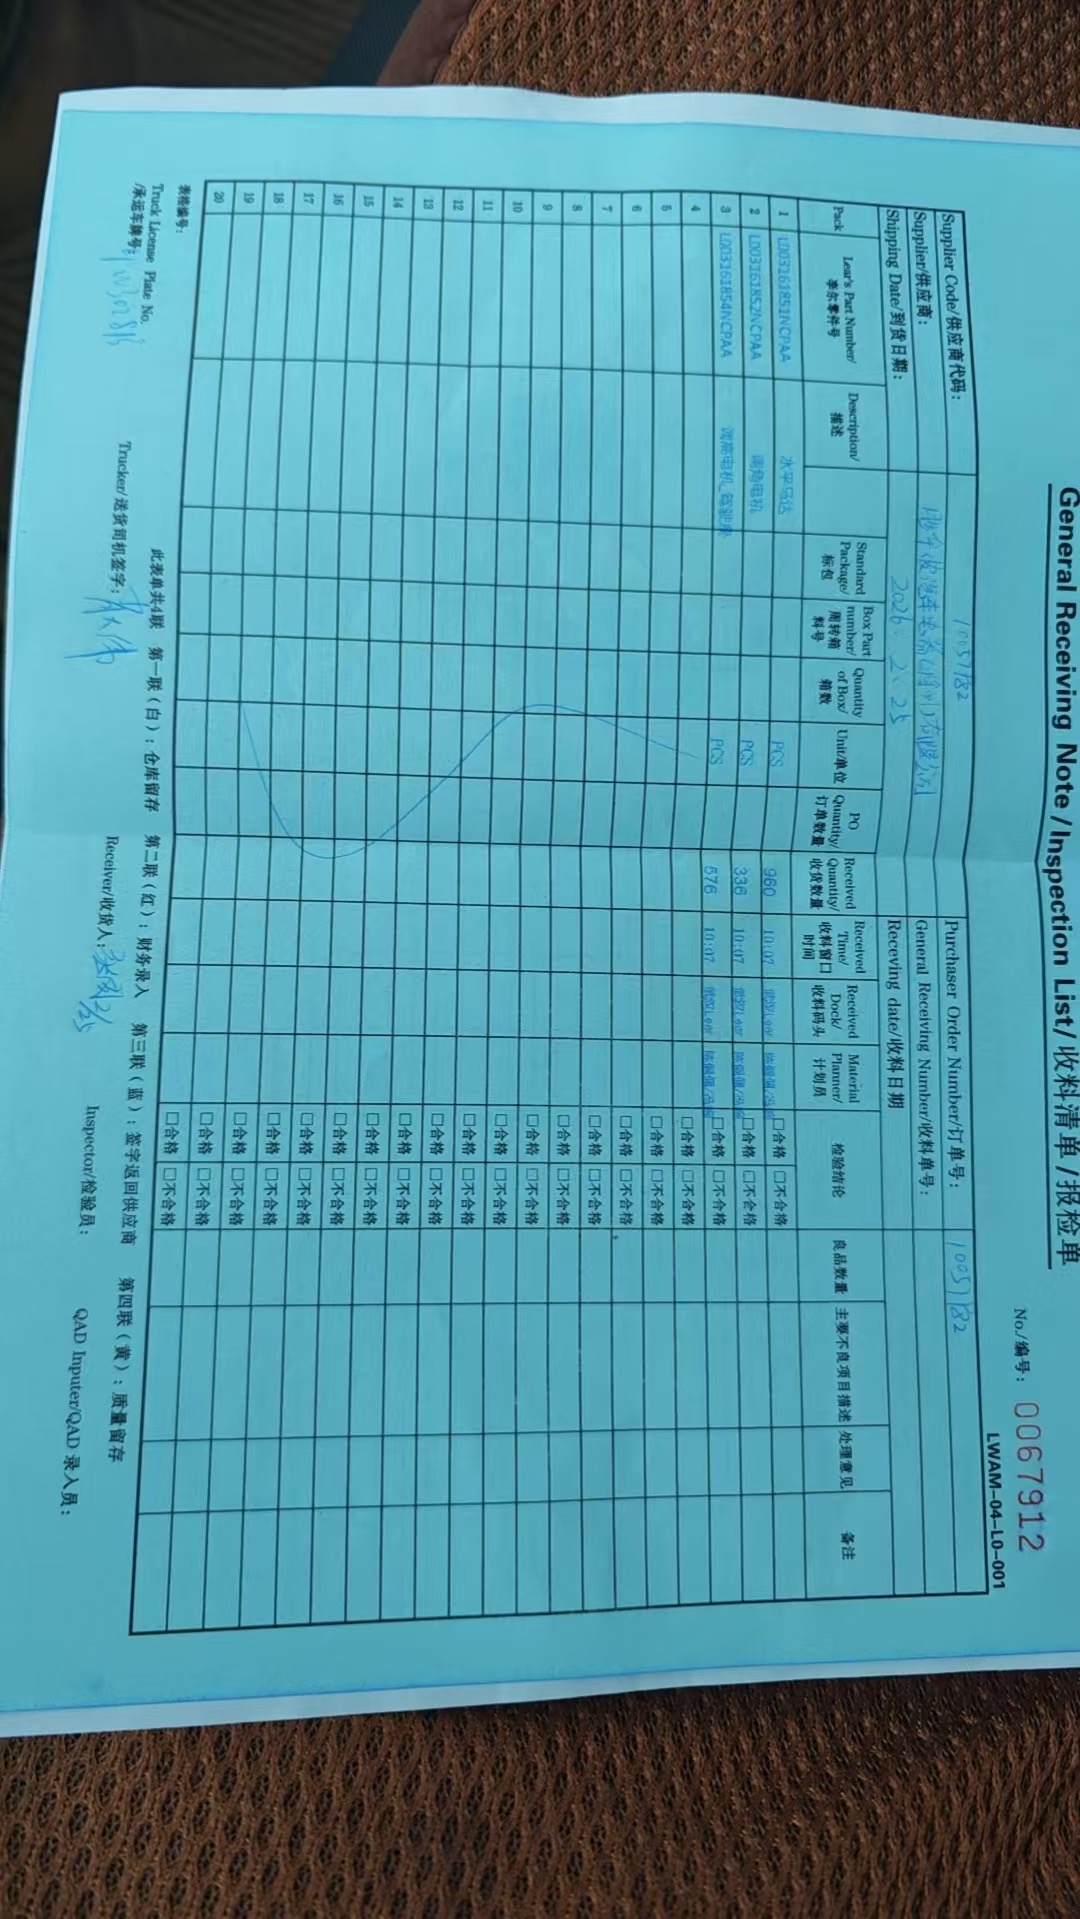 General Receiving Note/Inspection List/收料清单/报检单
No./编号: 0067912
LWAM-04-L0-001
Supplier Code/供应商代码: 10037182 Purchaser Order Number/订单号: 10037182
Supplier/供应商: General Receiving Number/收料单号:
Shipping Date/到货日期: 2026.2.25 Receving date/收料日期
Pack Lear's Part Number/李尔零件号 Description/描述 Standard Package/标包 Box Part number/周转箱料号 Quantity of Box/箱数 Unit/单位 PO Quantity/订单数量 Received Quantity/收货数量 Received Time/收料窗口时间 Received Dock/收料码头 Material Planner/计划员 检验结论 良品数量 主要不良项目描述 处理意见 备注
1 LD03161851NCPAA 水平马达 PCS 960 10:07 □合格 □不合格
2 LD03161852NCPAA 调角电机 PCS 336 10:07 □合格 □不合格
3 LD03161854NCPAA 调高电机_驾驶座 PCS 576 10:07 □合格 □不合格
4 □合格 □不合格
5 □合格 □不合格
6 □合格 □不合格
7 □合格 □不合格
8 □合格 □不合格
9 □合格 □不合格
10 □合格 □不合格
11 □合格 □不合格
12 □合格 □不合格
13 □合格 □不合格
14 □合格 □不合格
15 □合格 □不合格
16 □合格 □不合格
17 □合格 □不合格
18 □合格 □不合格
19 □合格 □不合格
20 □合格 □不合格
表格编号: 此表单共4联 第一联(白):仓库留存 第二联(红):财务录入 第三联(蓝):签字返回供应商 第四联(黄):质量留存
Truck License Plate No./承运车牌号: Trucker/送货司机签字: Receiver/收货人: Inspector/检验员: QAD Inputer/QAD 录入员: